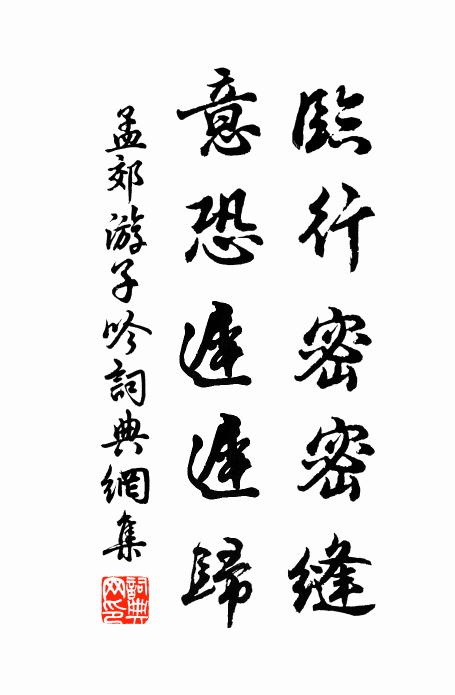 臨行密密縫
意恐遲遲歸
孟郊游子吟詞典網集
詞典網印